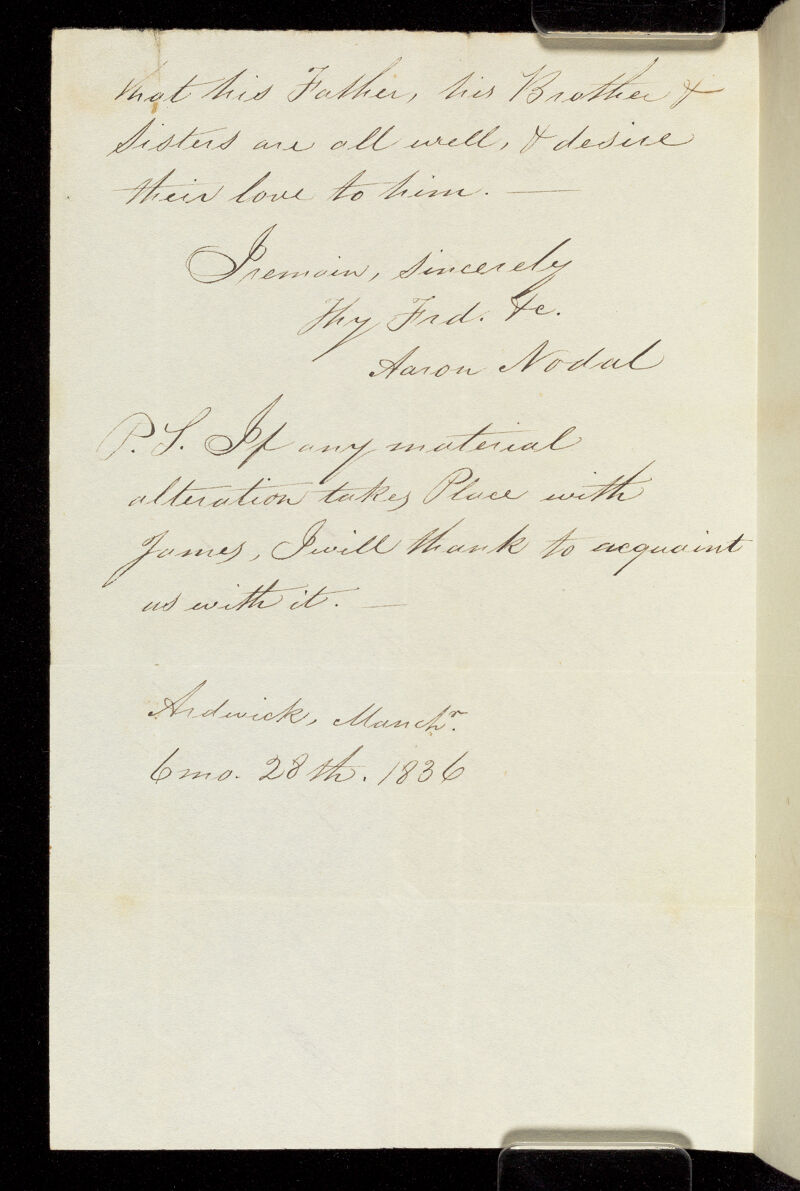 that his Father, his Brother &
Sisters are all well, & desire
their love to him. —
I remain, sincerely
Thy Frd. &c.
Aaron Nodal
P.S. If any material
alteration takes Place with
James, I will thank to acquaint
us with it. —
Ardwick, Manchr.
6mo. 28th. 1836